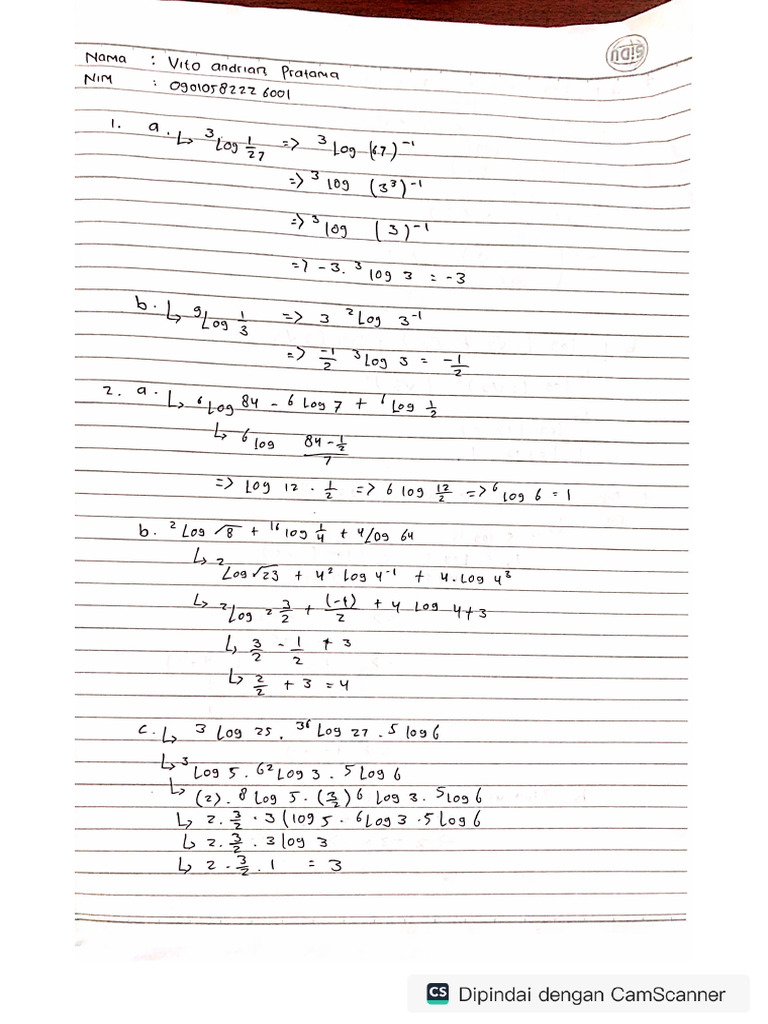 SIDU
Nama : Vito andrian Pratama
NIM : 09010582226001
1. a. ↳ ³Log 1/27 => ³Log (27)⁻¹
=> ³log (3³)⁻¹
=> ³log (3)⁻¹
=> -3. ³log 3 = -3
b. ↳ ⁹Log 1/3 => 3 ²Log 3⁻¹
=> -1/2 ³Log 3 = -1/2
2. a. ↳ ⁶Log 84 - 6 Log 7 + ⁶Log 1/2
↳ ⁶log (84 - 1/2)/7
=> Log 12 . 1/2 => 6 log 12/2 => ⁶log 6 = 1
b. ²Log √8 + ¹⁶log 1/4 + 4/og 64
↳ ²Log √23 + 4² Log 4⁻¹ + 4. Log 4³
↳ ²Log 2 3/2 + (-1)/2 + 4 Log 4+3
↳ 3/2 - 1/2 + 3
↳ 2/2 + 3 = 4
c. ↳ 3 Log 25 . ³⁶Log 27 . 5 log 6
↳ ³Log 5 . 6² Log 3 . 5 Log 6
↳ (2) . 8 Log 5 . (3/2) 6 Log 3 . ⁵log 6
↳ 2 . 3/2 . 3 (log 5 . ⁶Log 3 . 5 Log 6
↳ 2 . 3/2 . 3 log 3
↳ 2 . 3/2 . 1 = 3
CS Dipindai dengan CamScanner